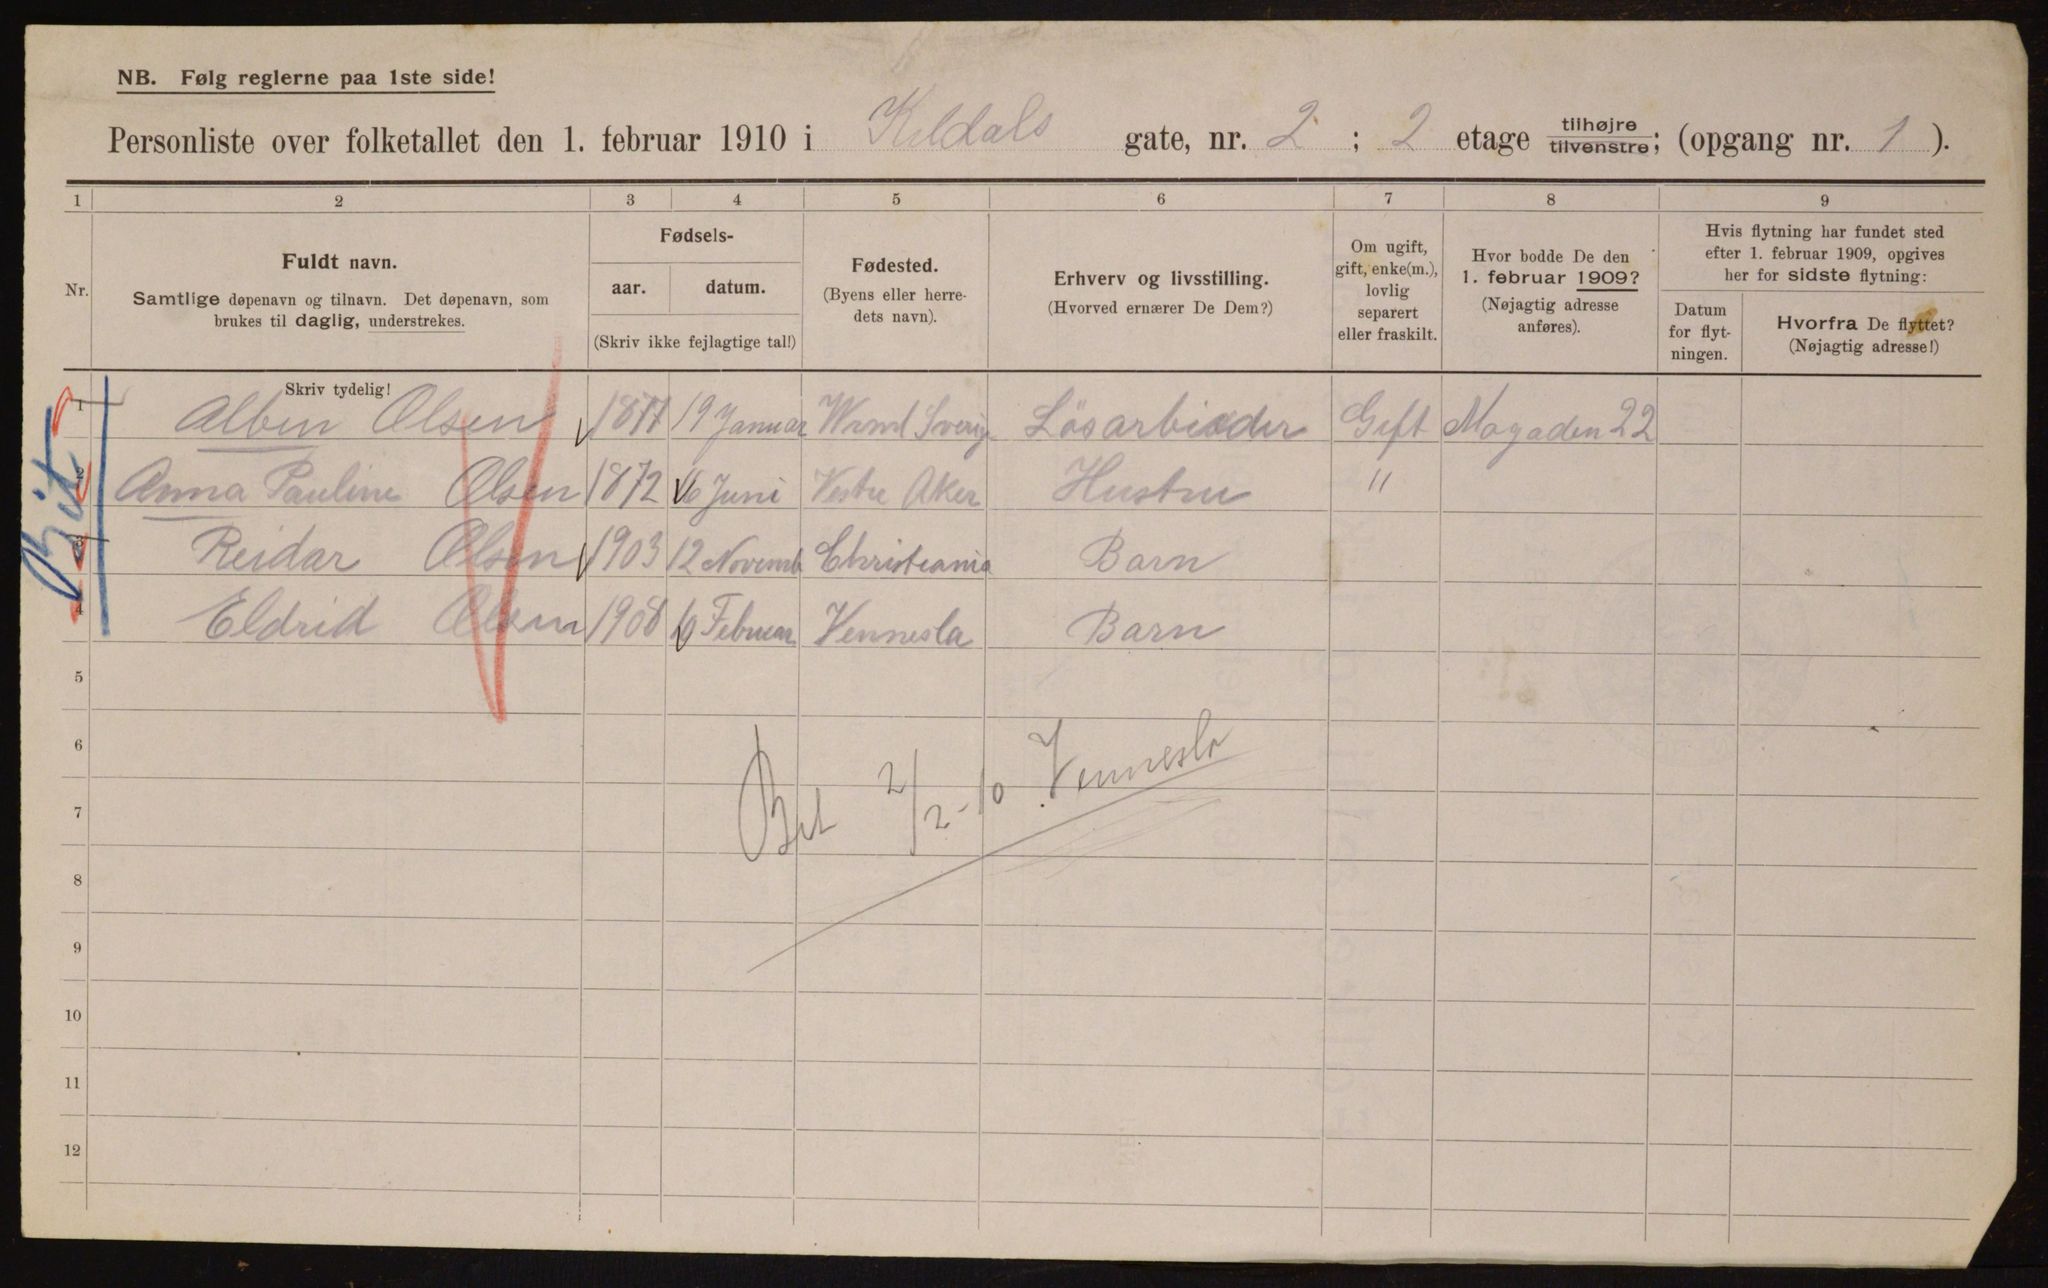 NB. Følg reglerne paa 1ste side!
Personliste over folketallet den 1. februar 1910 i Keldals gate, nr. 2 ; 2 etage tilhøjre tilvenstre; (opgang nr. 1 ).
1 2 3 4 5 6 7 8 9
Nr.
Fuldt navn.
Samtlige døpenavn og tilnavn. Det døpenavn, som
brukes til daglig, understrekes.
Fødsels-
aar. datum.
(Skriv ikke fejlagtige tal!)
Fødested.
(Byens eller herre-
dets navn).
Erhverv og livsstilling.
(Hvorved ernærer De Dem?)
Om ugift,
gift, enke(m.),
lovlig
separert
eller fraskilt.
Hvor bodde De den
1. februar 1909?
(Nøjagtig adresse
anføres).
Hvis flytning har fundet sted
efter 1. februar 1909, opgives
her for sidste flytning:
Datum
for flyt-
ningen.
Hvorfra De flyttet?
(Nøjagtig adresse!)
Skriv tydelig!
1 Albin Olsen 1877 19 Januar Sverige Lösarbieder Gift Mogaden 22
2 Anna Pauline Olsen 1872 16 Juni Vestre Aker Hustru "
3 Reidar Olsen 1903 12 Novemb Christiania Barn
4 Eldrid Olsen 1908 10 Februar Vennesla Barn
5
6
Bet 2/2-10 Vennesla
7
8
9
10
11
12